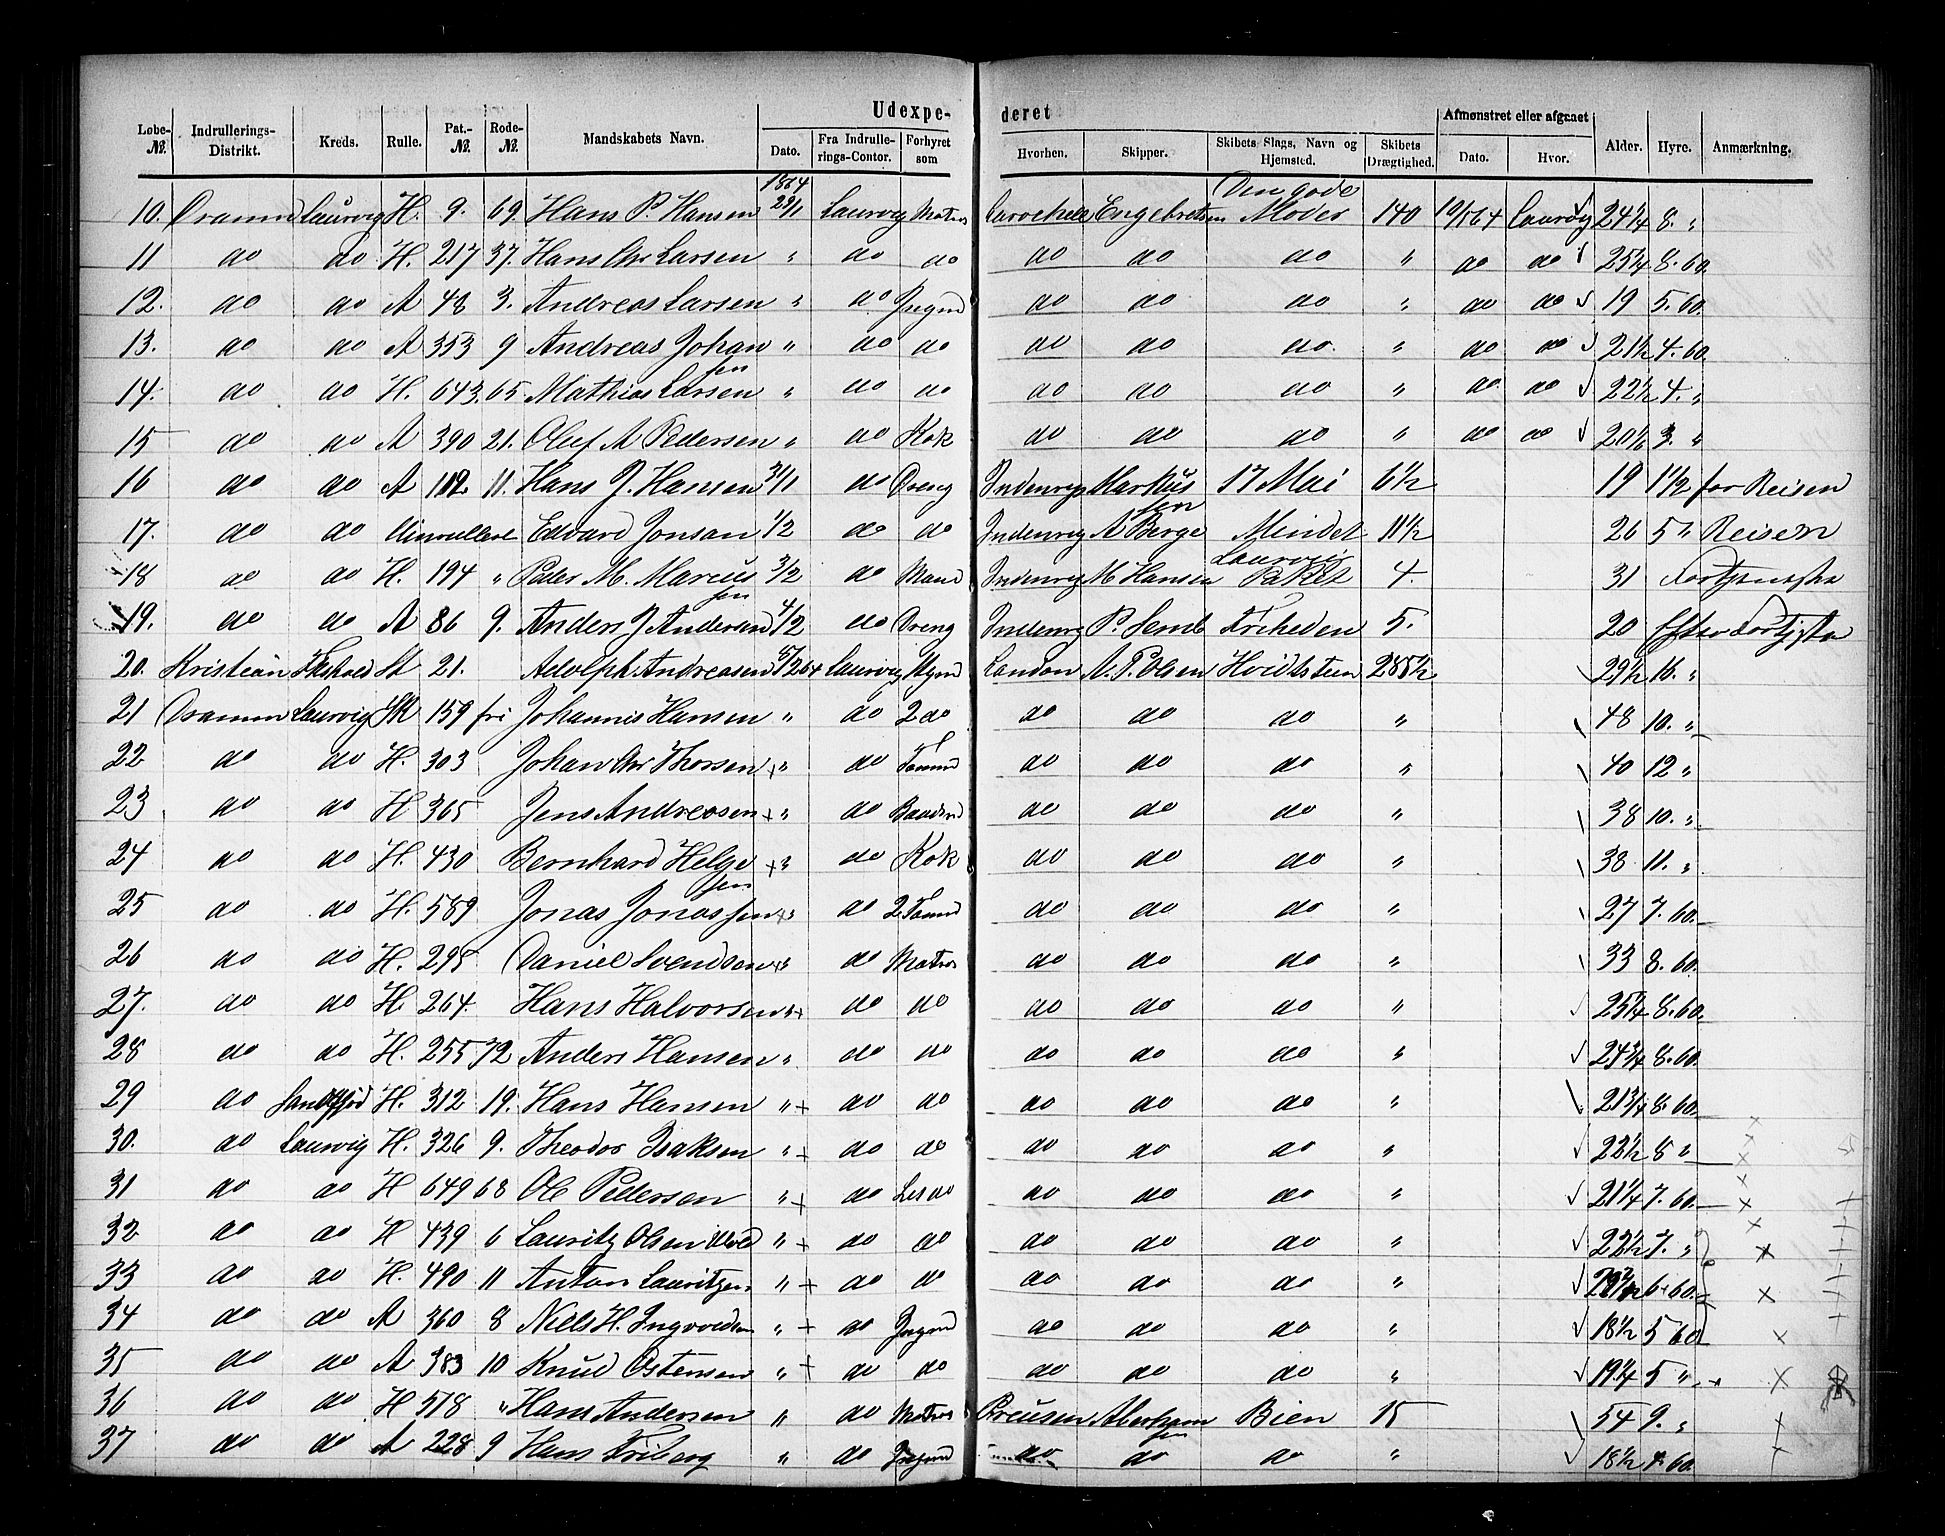 Udexpe- deret
Løbe-№. Indrullerings-Distrikt. Kreds. Rulle. Pat.-№. Rode-№. Mandskabets Navn. Dato. Fra Indrulle-rings-Contor. Forhyret som Hvorhen. Skipper. Skibets Slags, Navn og Hjemsted. Skibets Drægtighed. Afmønstret eller afgaaet Dato. Hvor. Alder. Hyre. Anmærkning.
1864 Den gode
10. Dramm Laurvig H. 9. 69. Hans P. Hansen 29/1 Laurvig Matros Engebretsen Moder 140 19/5 64 Laurvig 24 1/4 8. "
11 do do H. 217 37. Hans Chr Larsen " do do do do do " do do 25 1/4 8. 60
12. do do A 48 3. Andreas Larsen " do Jngmd do do do " do do 19 5. 60
13. do do A 353 9 Andreas Johansen " do do do do do. " do do 21 1/2 4. 60
14. do do H. 643. 65 Mathias Larsen " do do do do do " do. do 22 1/2 4. "
15 do do A 390 21. Oluf A Pedersen " do Kok do do do " do do 20 1/2 3. "
16 do do A 112 11. Hans J. Hansen 31/1 do Dreng Indenrigs Markussen 17 Mai 6 1/2 19 1 1/2 for Reisen
17. do do Uinrulleret Edvard Jonsen 1/2 do do Indenrig A Berge Mindet 11 1/2 26 5 " Reisen
18 do do H. 194 " Peder M. Marcussen 3/2 do Mand Indenrig M Hansen Laurvig Paket 4. 31 Fortjeneste
19. do do A 86 9. Anders J Andersen 4/2 do Dreng Indenrig P. Semb Friheden 5. 20 Efter Fortjeneste
20. Kristian St 21. Adolph Andreasen 5/2 64 Laurvig Stymd London N. P. Olsen Hvidsteen 285 1/2 29 1/2 16. "
21 Dramm Laurvig 159 fri Johannes Hansen " do 2 do do do do " 48 10. "
22 do do H. 303 Johan Chr Thorsen + " do Tømmd do do do " 40 12 "
23 do do H 365 Jens Andreasen + " do Baadsmd do do do " 38 10. "
24 do do H. 430 Bernhard Helgesen + " do Kok do do do " 38 11. "
25 do do H. 589 Jonas Jonassen + " do 2 Tømmd do do do " 27 7. 60
26 do do H. 295 Daniel Svendsen + " do Matros do do do " 33 8. 60.
27. do do H. 264. Hans Halvorsen " + do do do do do " 25 1/4 8. 60
28 do do H. 255 72 Anders Hansen " do do do do do " 24 3/4 8. 60
29 do Sandefjord H. 312 19. Hans Hansen " + do do do do do " 21 3/4 8. 60
30. do Laurvig H. 326 9. Theodor Isaksen " + do do do do do " 22 1/2 8 "
31 do do H 649 68 Ole Pedersen " + do do do do " 21 1/4 7. 60
32 do do H 439 6 Lauritz Olsen " + do do do do do " 22 1/2 7. "
33 do do H. 490 11 Anton Lauritzen " + do do do do do " 6. 60
34 do do A 360 8 Niels H. Ingvoldsen " + do Jngmd do do do " 18 1/2 5 60
35 do do A 383 10 Knud Ostensen " + do do do do do " 19 1/4 5 "
36 do do H 518 " Hans Andersen " do Matros Preusen Aberhamsen Bien 15 54 9. "
37 do do A 228 9 Hans Friberg " do Jngmd do do do " 18 1/2 4. 60